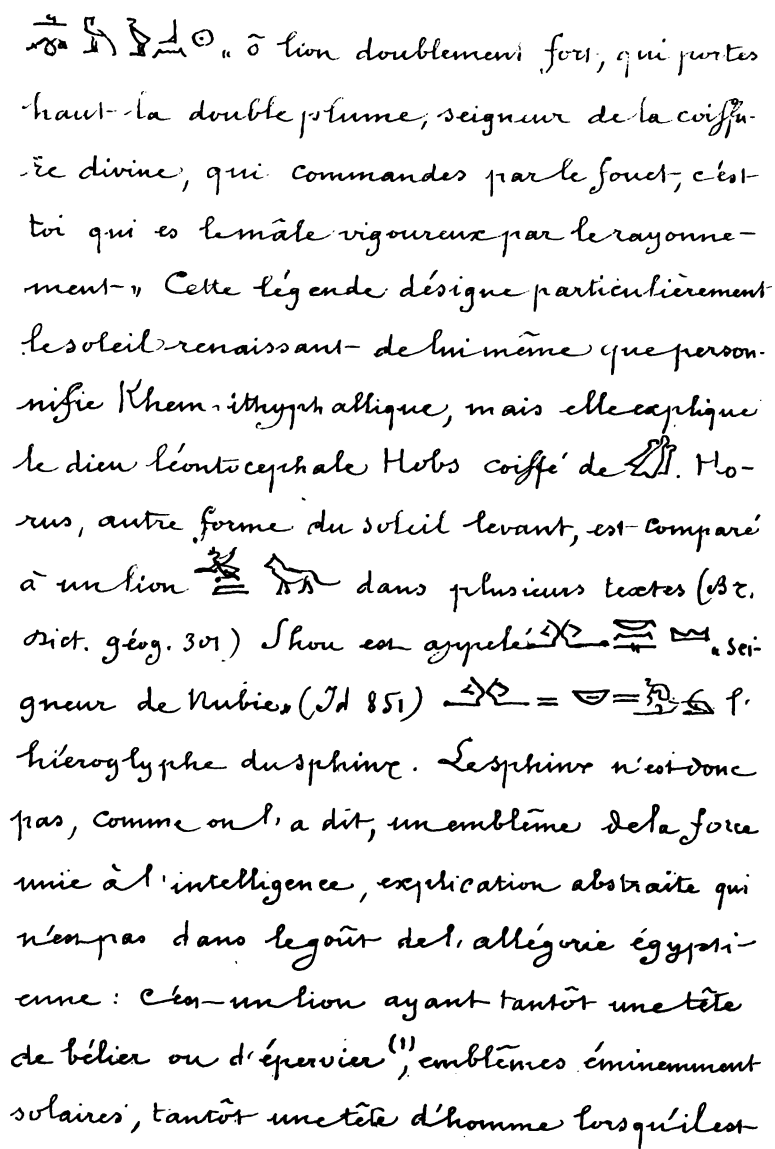 „ ô lion doublement fort, qui portes
haut la double plume, seigneur de la coiffu-
re divine, qui commandes par le fouet, c'est
toi qui es le mâle vigoureux par le rayonne-
ment „ Cette légende désigne particulièrement
le soleil renaissant de lui même que person-
nifie Khem ithyphallique, mais elle explique
le dieu léontocéphale Hobs coiffé de . Ho-
rus, autre forme du soleil levant, est comparé
à un lion dans plusieurs textes (Br.
Dict. géog. 301) Shou est appelé „ sei-
gneur de Nubie „ (Id 851) = = l'
hiéroglyphe du sphinx. Le sphinx n'est donc
pas, comme on l'a dit, un emblême de la force
unie à l'intelligence, explication abstraite qui
n'est pas dans le goût de l'allégorie égypti-
enne : c'est un lion ayant tantôt une tête
de bélier ou d'épervier (1), emblêmes éminemment
solaires, tantôt une tête d'homme lorsqu'il est